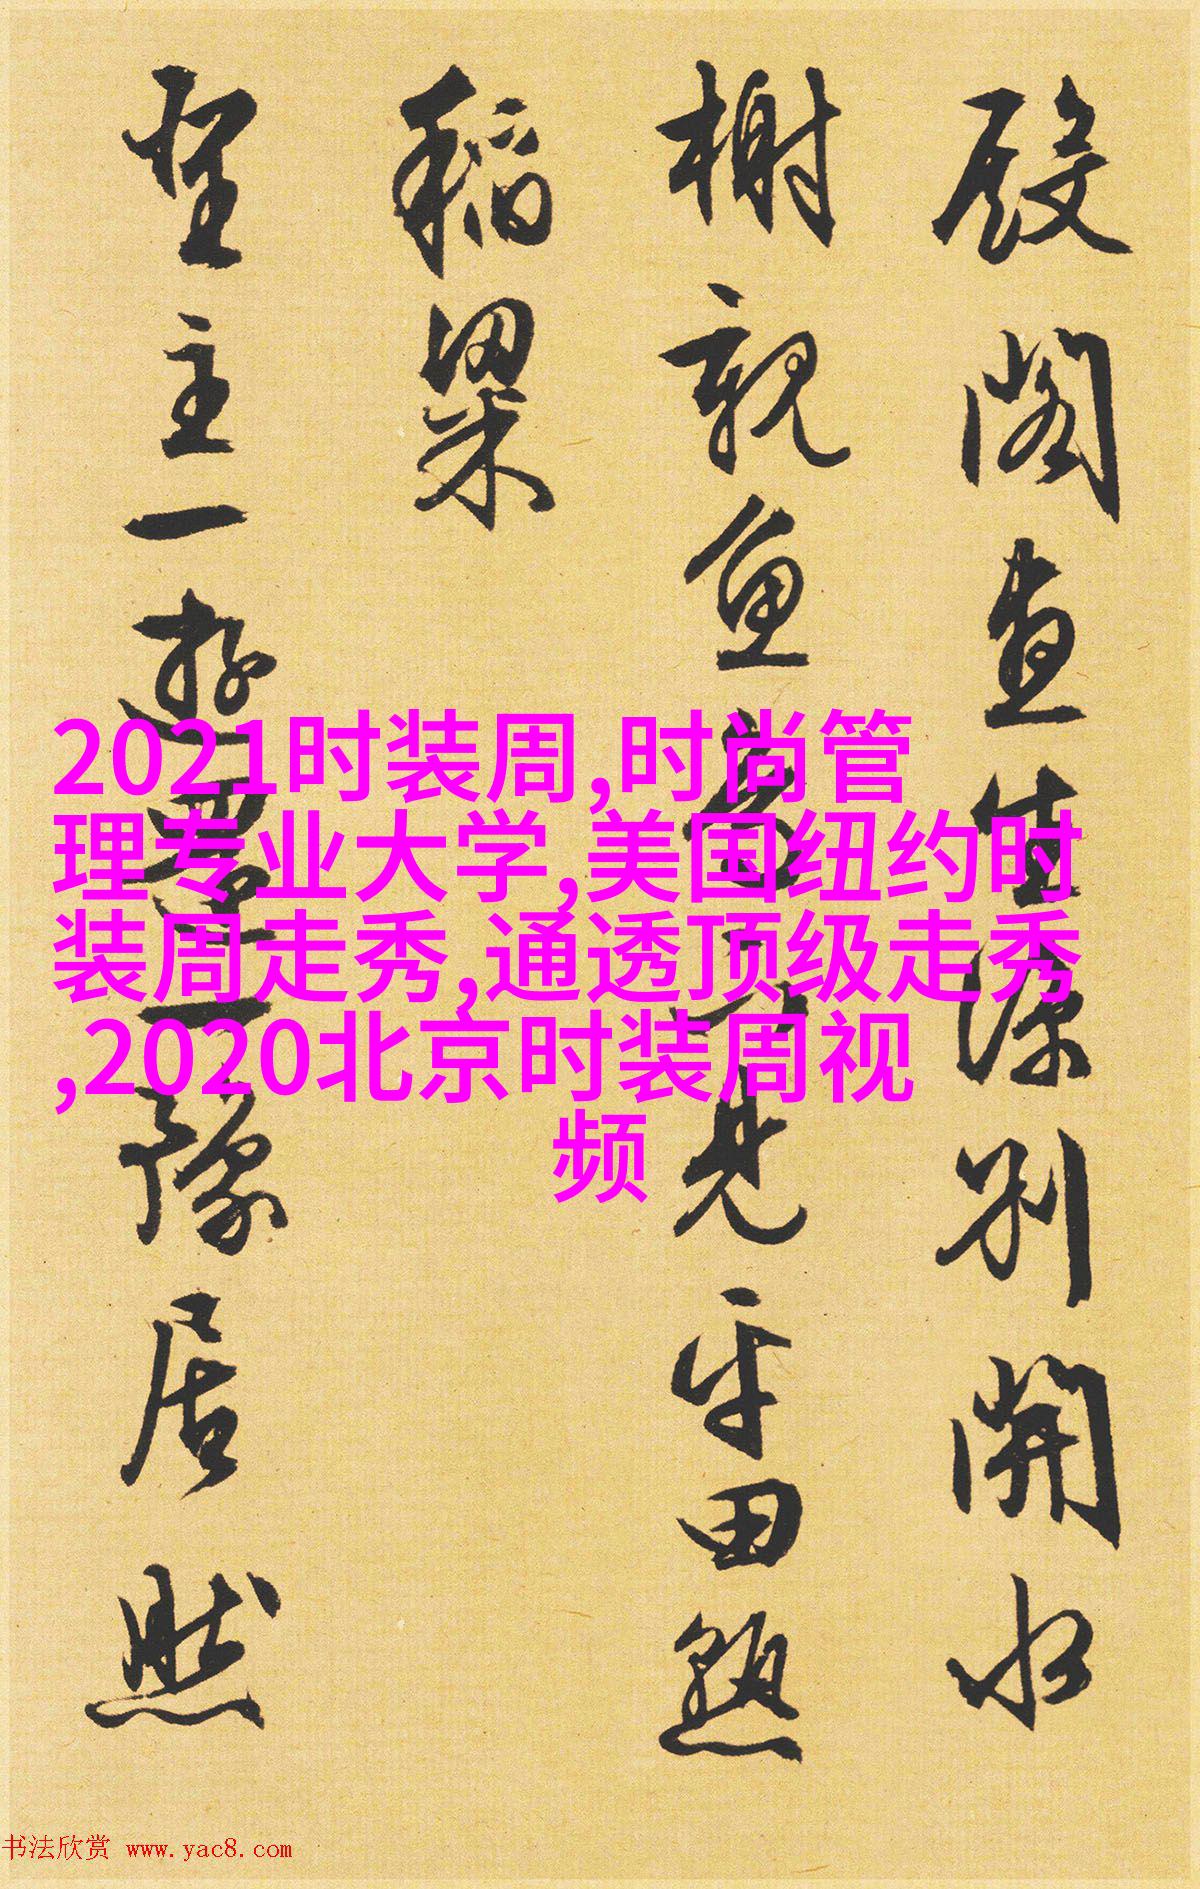 殿阁直生源别开水
榭观鱼
见平田熟
稻粱
圣主一游
一豫居
然
2021时装周,时尚管
理专业大学,美国纽约时
装周走秀,通透顶级走秀
,2020北京时装周视
频
书法欣赏 www.yac8.com